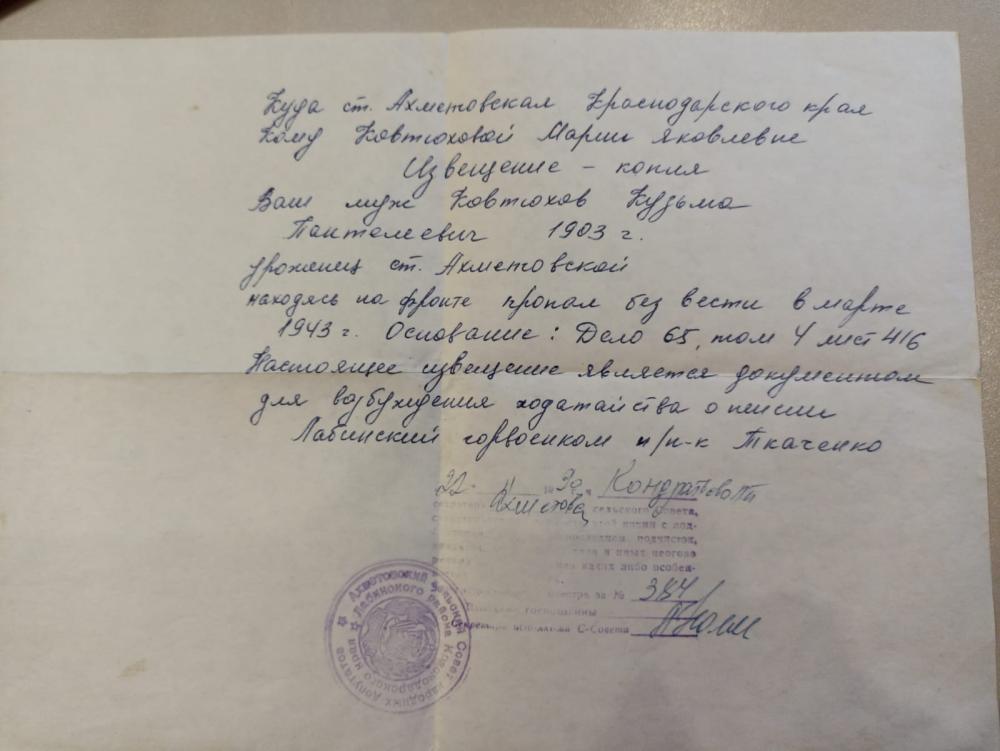 Куда ст. Ахметовская Краснодарского края
Кому Ковтюховой Марии Яковлевне
Извещение – копия
Ваш муж Ковтюхов Кузьма
Пантелевич 1903 г.
уроженец ст. Ахметовской
находясь на фронте пропал без вести в марте
1943 г. Основание: Дело 65, том 4 лист 416
Настоящее извещение является документом
для возбуждения ходатайства о пенсии
Лабинский горвоенком п/п-к Ткаченко
22
сельского Совета,
с под-
подчисток,
и иных неогово
каких либо особен-
за № 384
госпошлины
С-Совета
Ахметовский сельский Совет народных депутатов
Лабинского района Краснодарского края